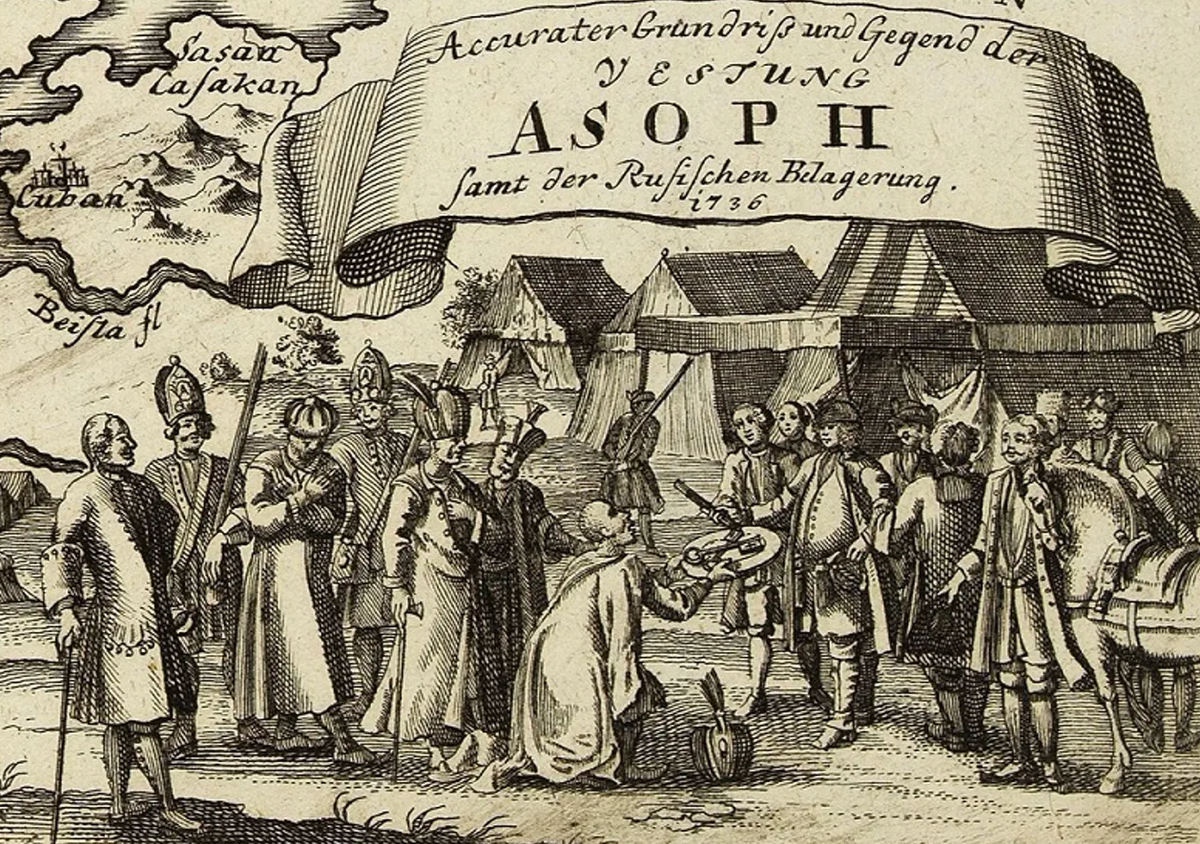 N
Accurater Grundriſs und Gegend der
VESTUNG
ASOPH
ſamt der Ruſiſchen Belagerung.
1736
Sasan
Caſakan
Cuban
Beiſla fl